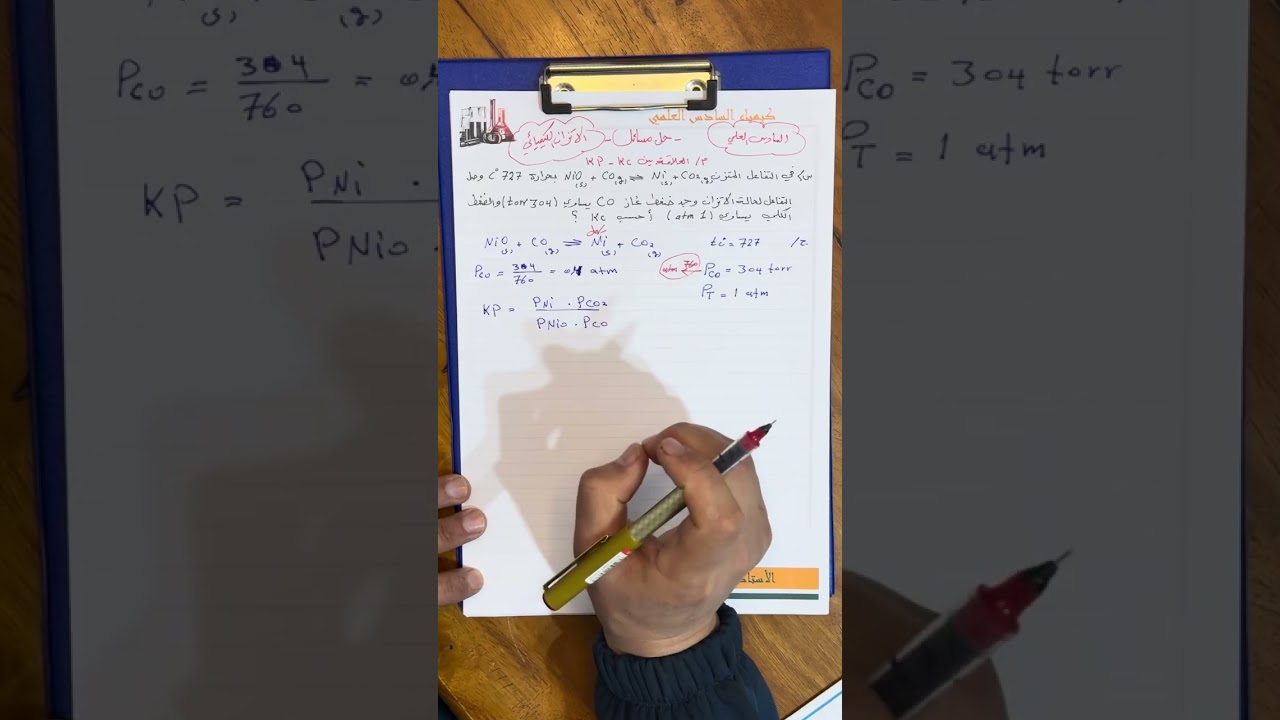 كيمياء السادس العلمي
السادس العلمي - حل مسائل - الاتزان الكيميائي
م/ العلاقة بين KP - Kc
س/ في التفاعل المتزن NiO(s) + CO(g) ⇌ Ni(s) + CO2(g) بحرارة 727 C° وصل
التفاعل لحالة الاتزان وجد ضغط غاز CO يساوي (304 torr) والضغط
الكلي يساوي (1 atm) أحسب Kc ؟
NiO(s) + CO(g) ⇌ Ni(s) + CO2(g)
t c° = 727
ج/
PCO = 304/760 = 0,4 atm
atm 760 PCO = 304 torr
PT = 1 atm
KP = PNi . PCO2 / PNiO . PCO
الأستاذ
(s) (g)
PCO = 304/760 =
KP = PNi / PNiO
PCO = 304 torr
PT = 1 atm